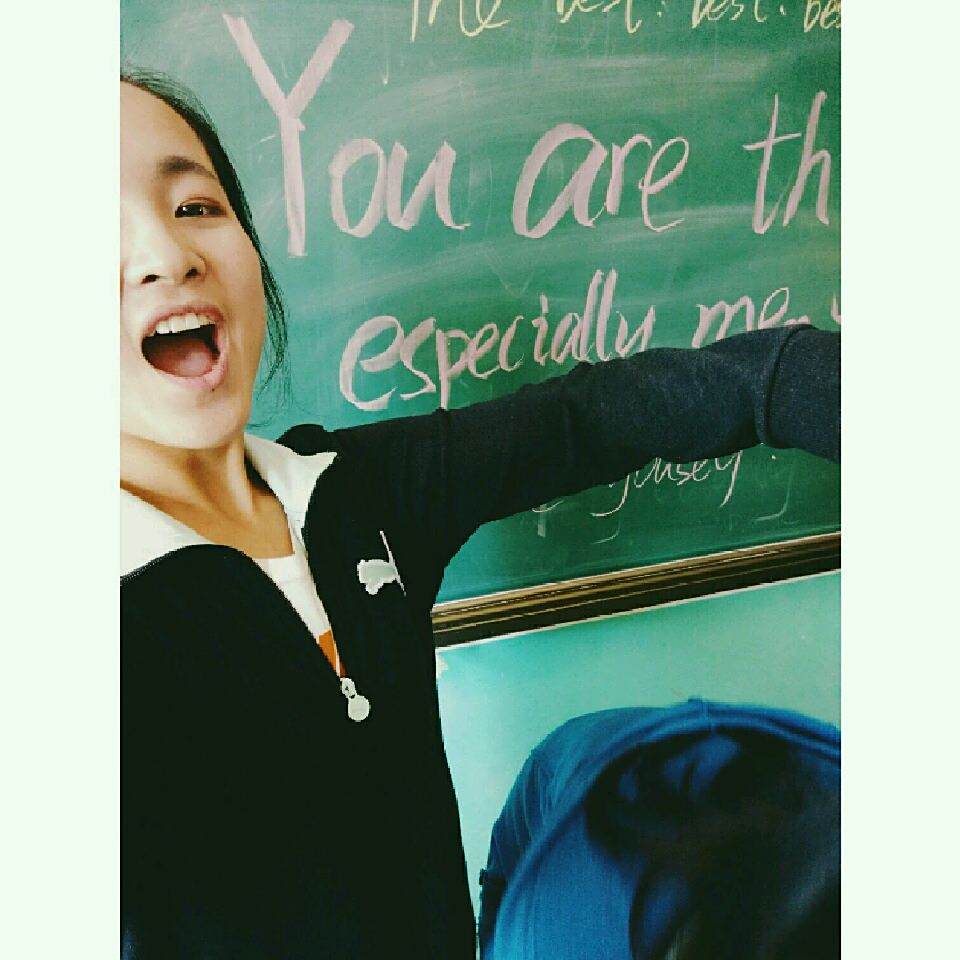 The best. best. bes
You are th
especially me